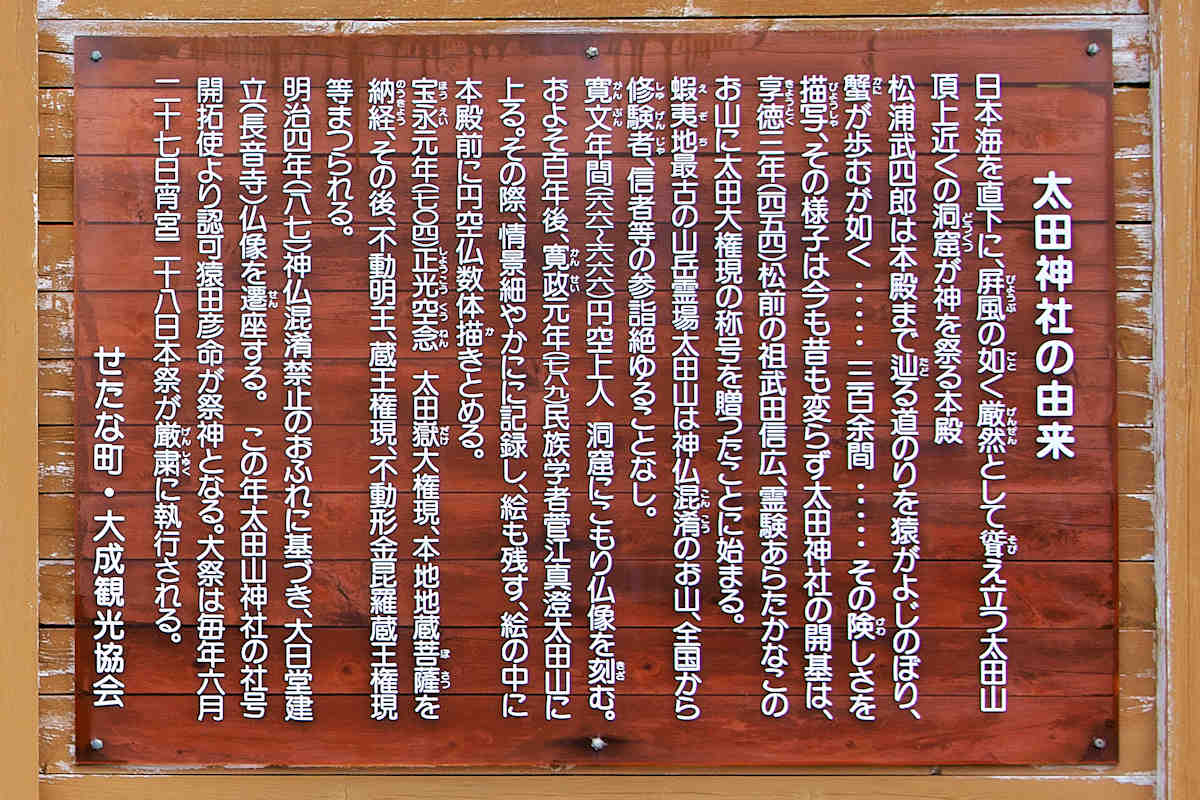 太田神社の由来
日本海を直下に、屛風の如く厳然として聳え立つ太田山
頂上近くの洞窟が神を祭る本殿
松浦武四郎は本殿まで辿る道のりを猿がよじのぼり、
蟹が歩むが如く ‥‥‥ 三百余間 ‥‥‥ その険しさを
描写、その様子は今も昔も変らず太田神社の開基は、
享徳三年(一四五四)松前の祖武田信広、霊験あらたかなこの
お山に太田大権現の称号を贈ったことに始まる。
蝦夷地最古の山岳霊場太田山は神仏混淆のお山、全国から
修験者、信者等の参詣絶ゆることなし。
寛文年間(一六六一〜一六六六)円空上人 洞窟にこもり仏像を刻む。
およそ百年後、寛政元年(一七八九)民族学者菅江真澄太田山に
上る。その際、情景細やかにに記録し、絵も残す、絵の中に
本殿前に円空仏数体描きとめる。
宝永元年(一七〇四)正光空念 太田嶽大権現、本地地蔵菩薩を
納経、その後、不動明王、蔵王権現、不動形金昆羅蔵王権現
等まつられる。
明治四年(一八七一)神仏混淆禁止のおふれに基づき、大日堂建
立(長音寺)仏像を遷座する。 この年太田山神社の社号
開拓使より認可猿田彦命が祭神となる。大祭は毎年六月
二十七日宵宮二十八日本祭が厳粛に執行される。
せたな町・大成観光協会